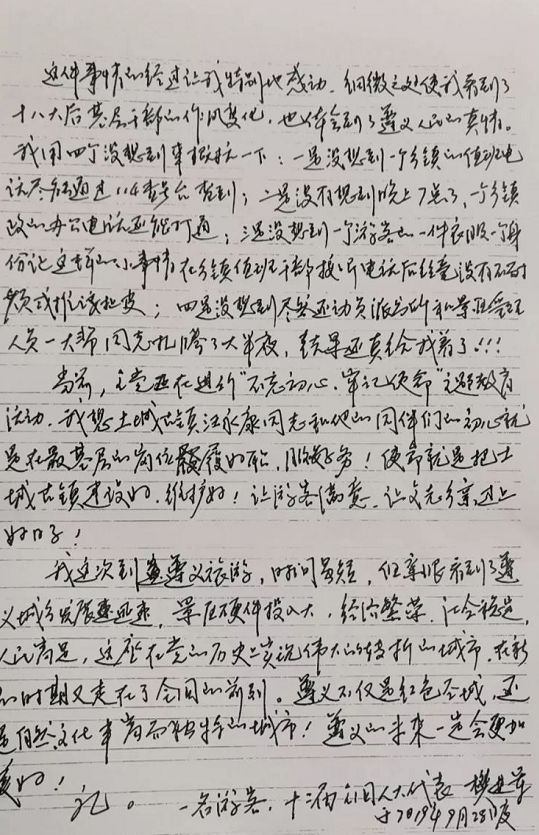 这件事情的经过让我特别地感动。细微之处使我看到了
十八大后基层干部的作风变化,也体会到了遵义人民的真情。
我用四个没想到来概括一下:一是没想到一个乡镇的值班电
话尽能通过114查号台查到;二是没有想到晚上7点了,一个乡镇
政府办公电话还能打通;三是没想到一个游客的一件衣服一个身
份证这样的小事情在乡镇值班干部接听电话后经意没有不耐
烦或推诿扯皮;四是没想到尽然还动员派出所和景区管理
人员一大帮同志扎腾了大半夜,结果还真给找着了!!!
当前,全党正在进行“不忘初心、牢记使命”主题教育
活动。我想土城古镇江永康同志和他的同伴们的初心就
是在最基层的岗位履好职,服好务!使命就是把土
城古镇建设好、维护好!让游客满意,让父老乡亲过上
好日子!
我这次到遵义旅游,时间虽短,但亲眼看到了遵
义城乡发展迅速,景区硬件投入大,经济繁荣,社会稳定,
人民满足,这座在党的历史上实现伟大的转折的城市,在新
的时期又走在了全国的前列。遵义不仅是红色圣城,还
是自然文化丰富而独特的城市!遵义的未来一定会更加
美好!
礼。
一名游客,十二届全国人大代表
于2019年9月28日夜